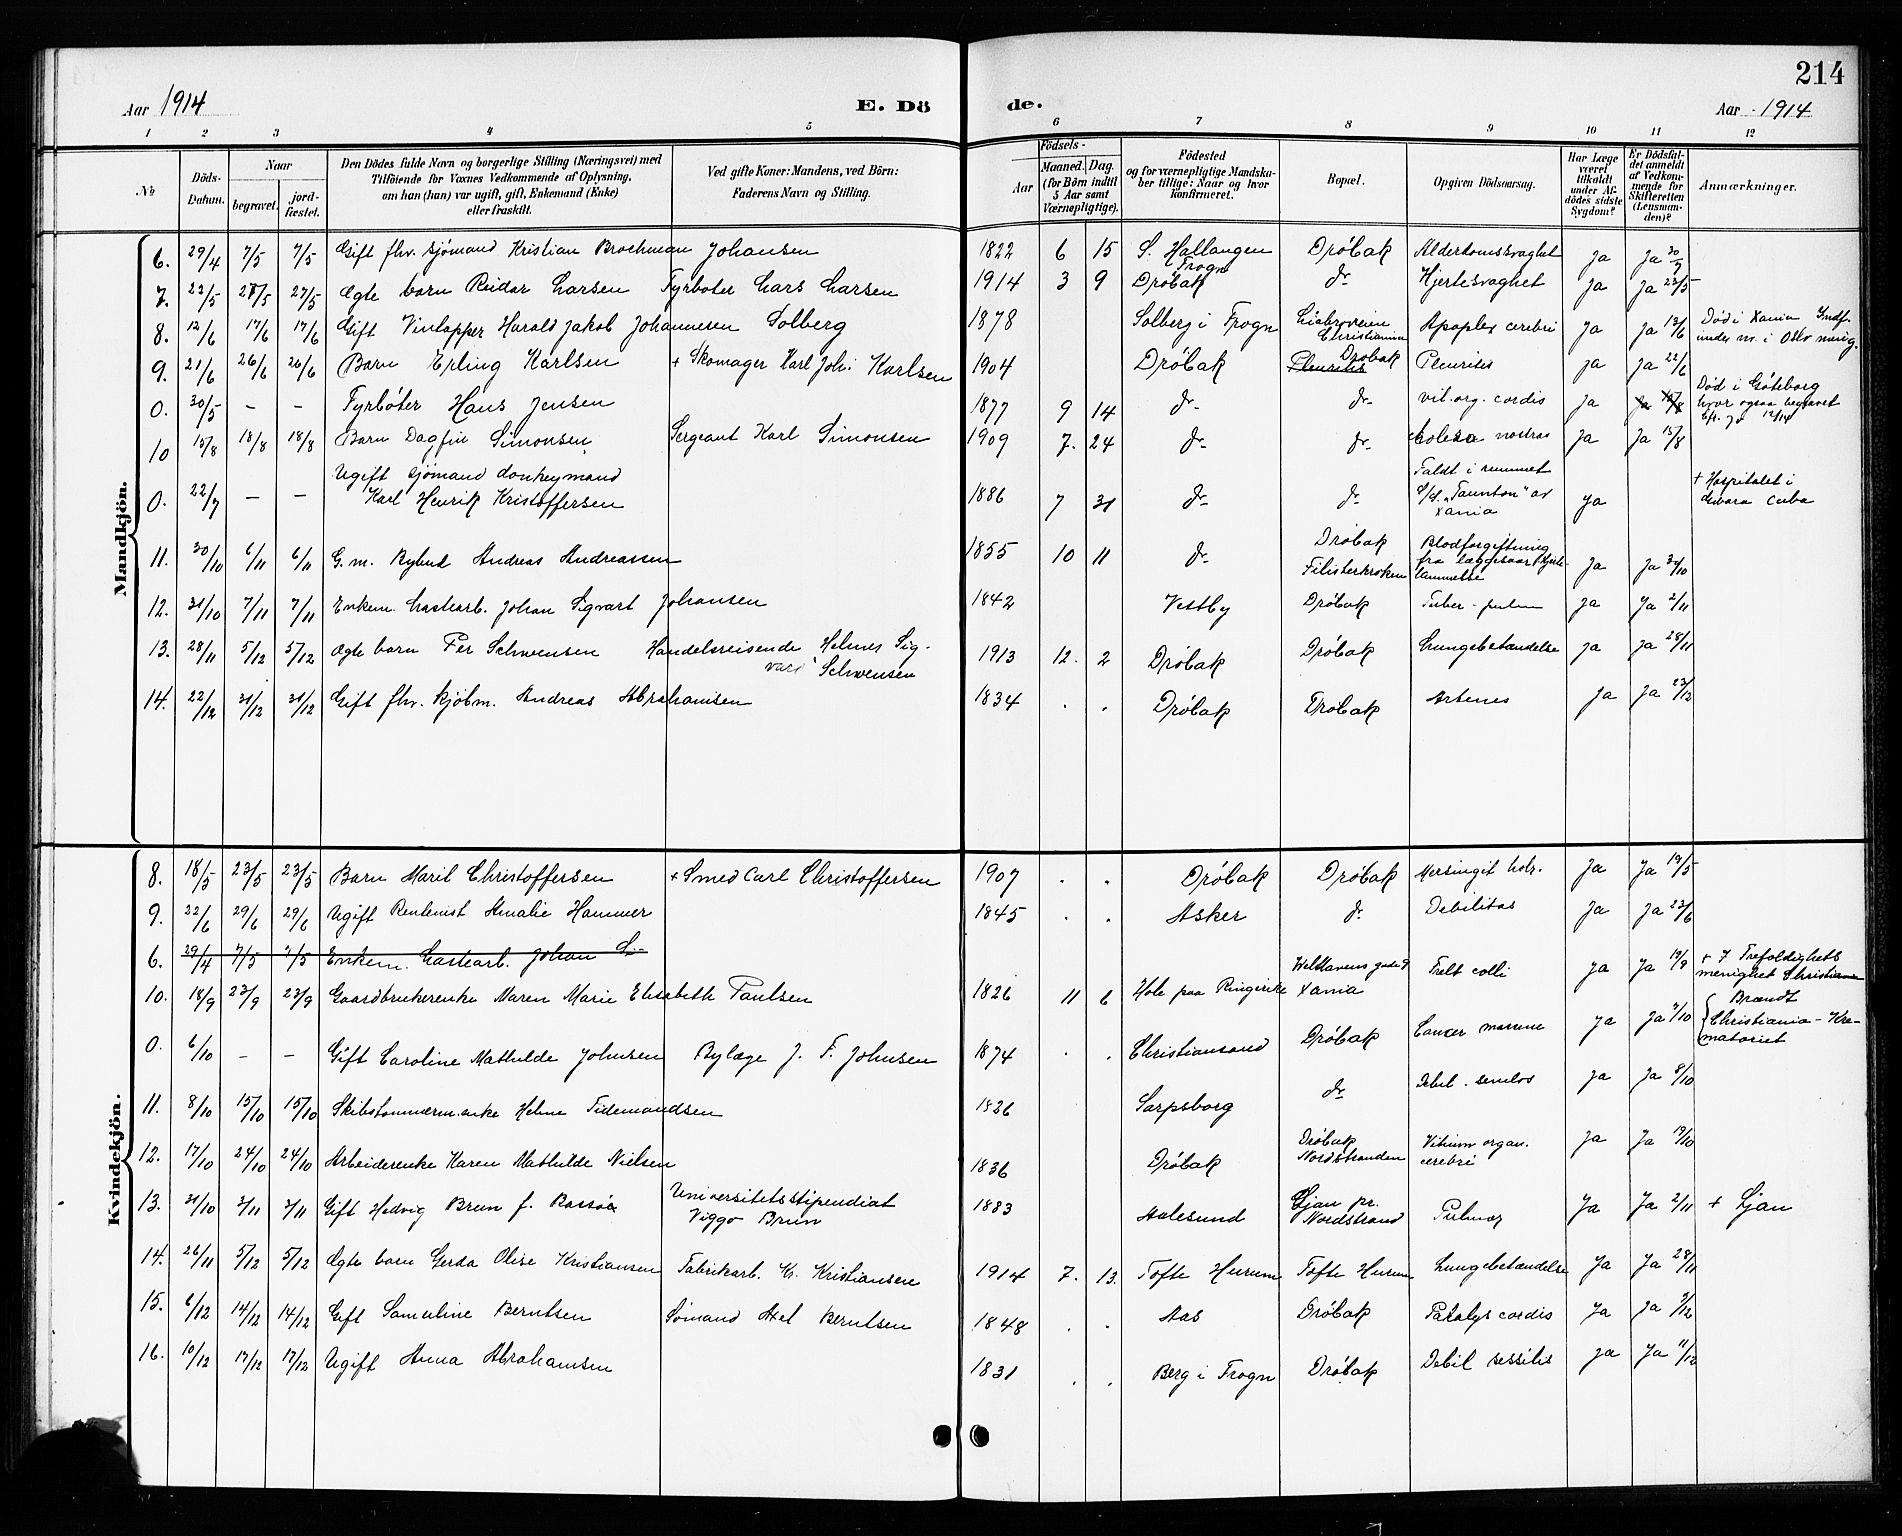 214
Aar 1914
E. Dö
de.
Aar 1914
1 2 3 4 5 6 7 8 9 10 11 12
№
Döds-Datum.
Naar
begravet.
jord-fæstet.
Den Dödes fulde Navn og borgerlige Stilling (Næringsvei) med
Tilföiende for Voxnes Vedkommende af Oplysning,
om han (hun) var ugift, gift, Enkemand (Enke)
eller fraskilt.
Ved gifte Koner: Mandens, ved Börn:
Faderens Navn og Stilling.
Födsels-
Aar
Maaned. Dag.
(for Börn indtil
5 Aar samt
Værnepligtige).
Födested
og for værnepligtige Mandska-
ber tillige: Naar og hvor
konfirmeret.
Bopæl.
Opgiven Dödsaarsag.
Har Læge
været
tilkaldt
under Af-
dödes sidste
Sygdom?
Er Dödsfal-
det anmeldt
af Vedkom-
mende for
Skifteretten
(Lensman-
den)?
Anmærkninger.
Mandkjön.
6. 29/4 7/5 7/5 Gift fhv. sjømand Kristian Brochman Johansen 1822 6 15 S. Hallangen Frogn Drøbak Alderdomssvaghet Ja Ja 30/
7. 22/5 27/5 27/5 Ægte barn Reidar Larsen Fyrbøter Lars Larsen 1914 3 9 Drøbak do Hjertesvaghet Ja Ja 23/5
8. 12/6 17/6 17/6 Gift Vintapper Harald Jakob Johannesen Solberg 1878 Solberg i Frogn Christiania Apoplex cerebri Ja Ja 13/6 Død i Xania
9. 21/6 26/6 26/6 Barn Erling Karlsen + Skomager Karl Joh. Karlsen 1904 Drøbak Pleuritis Drøbak Pleuritis Ja Ja 22/6
0. 30/5 – – Fyrbøter Hans Jensen 1877 9 14 do do vit. org. cordis Ja Ja Død i Göteborg
hvor ogsaa begravet
10 15/8 18/8 18/8 Barn Dagfin Simonsen Sergeant Karl Simonsen 1909 7. 24 do do colera nostras Ja Ja 15/8
0. 22/7 – – Ugift sjømand donkeymand
Karl Henrik Kristoffersen 1886 7 31 do do Faldt i rummet
S/S. "Taunton" av
Xania Ja + Hospitalet i
Cuba
11. 30/10 6/11 6/11 G.m. Bybud Andreas Andreassen 1855 10 11 do Drøbak
Filisterkroken Blodforgiftning
fra læggesaar Hjerte-
lammelse Ja Ja 30/10
12. 31/10 7/11 7/11 Enkem. Lastearb. Johan Sigvart Johansen 1842 Vestby Drøbak Tuber. pulm Ja Ja 2/11
13. 28/11 5/12 5/12 Ægte barn Per Schwensen Handelsreisende Helmer Sig-
vard Schwensen 1913 12. 2 Drøbak Drøbak Lungebetændelse Ja Ja 28/11
14. 22/12 31/12 31/12 Gift fhv. kjøbm. Andreas Abrahamsen 1834 . . Drøbak Drøbak Ja Ja 23/12
Kvindekjön.
8. 18/5 23/5 23/5 Barn Marit Christoffersen + Smed Carl Christoffersen 1907 . . Drøbak Drøbak Ja Ja 19/5
9. 22/6 29/6 29/6 Ugift Rentenist Amalie Hammer 1845 . . Asker do Debilitas Ja Ja 23/6
6. 29/4 7/5 7/5 Enkem. Lastearb. Johan S.
10. 18/9 23/9 23/9 Gaardbrukerenke Maren Marie Elisabeth Paulsen 1826 11 6 Hole paa Ringerike Welhavens gade 9
Xania colli Ja Ja 19/9 + i Trefoldighets
menighet Christiania
0. 6/10 – – Gift Caroline Mathilde Johnsen Bylæge J. F. Johnsen 1874 . . Christiansand Drøbak Cancer mamme Ja Ja 7/10 Brændt
Christiania-Kre-
matoriet
11. 8/10 15/10 15/10 Skibstømmerm.enke Helene Tidemandsen 1836 Sarpsborg do Debil. senilos Ja Ja 8/10
12. 17/10 24/10 24/10 Arbeiderenke Karen Mathilde Nielsen 1836 Drøbak Drøbak
Nordstranden Vitium organ.
cerebri Ja Ja 19/10
13. 31/10 3/11 3/11 Gift Hedvig Brun f. Bassøe Universitetsstipendiat
Viggo Brun 1883 Aalesund Ljan pr.
Nordstrand Ja Ja 2/11 + Ljan
14. 26/11 5/12 5/12 Ægte barn Gerda Olise Kristiansen Fabrikarb. Kr. Kristiansen 1914 7. 13. Tofte Hurum Tofte Hurum Lungebetændelse Ja Ja 28/11
15. 6/12 14/12 14/12 Gift Samuline Berntsen Sømand Axel Berntsen 1848 . . Aas Drøbak Paralys cordis Ja Ja 7/12
16. 10/12 17/12 17/12 Ugift Anna Abrahamsen 1831 . . Berg i Frogn Drøbak Debil Ja Ja 11/12